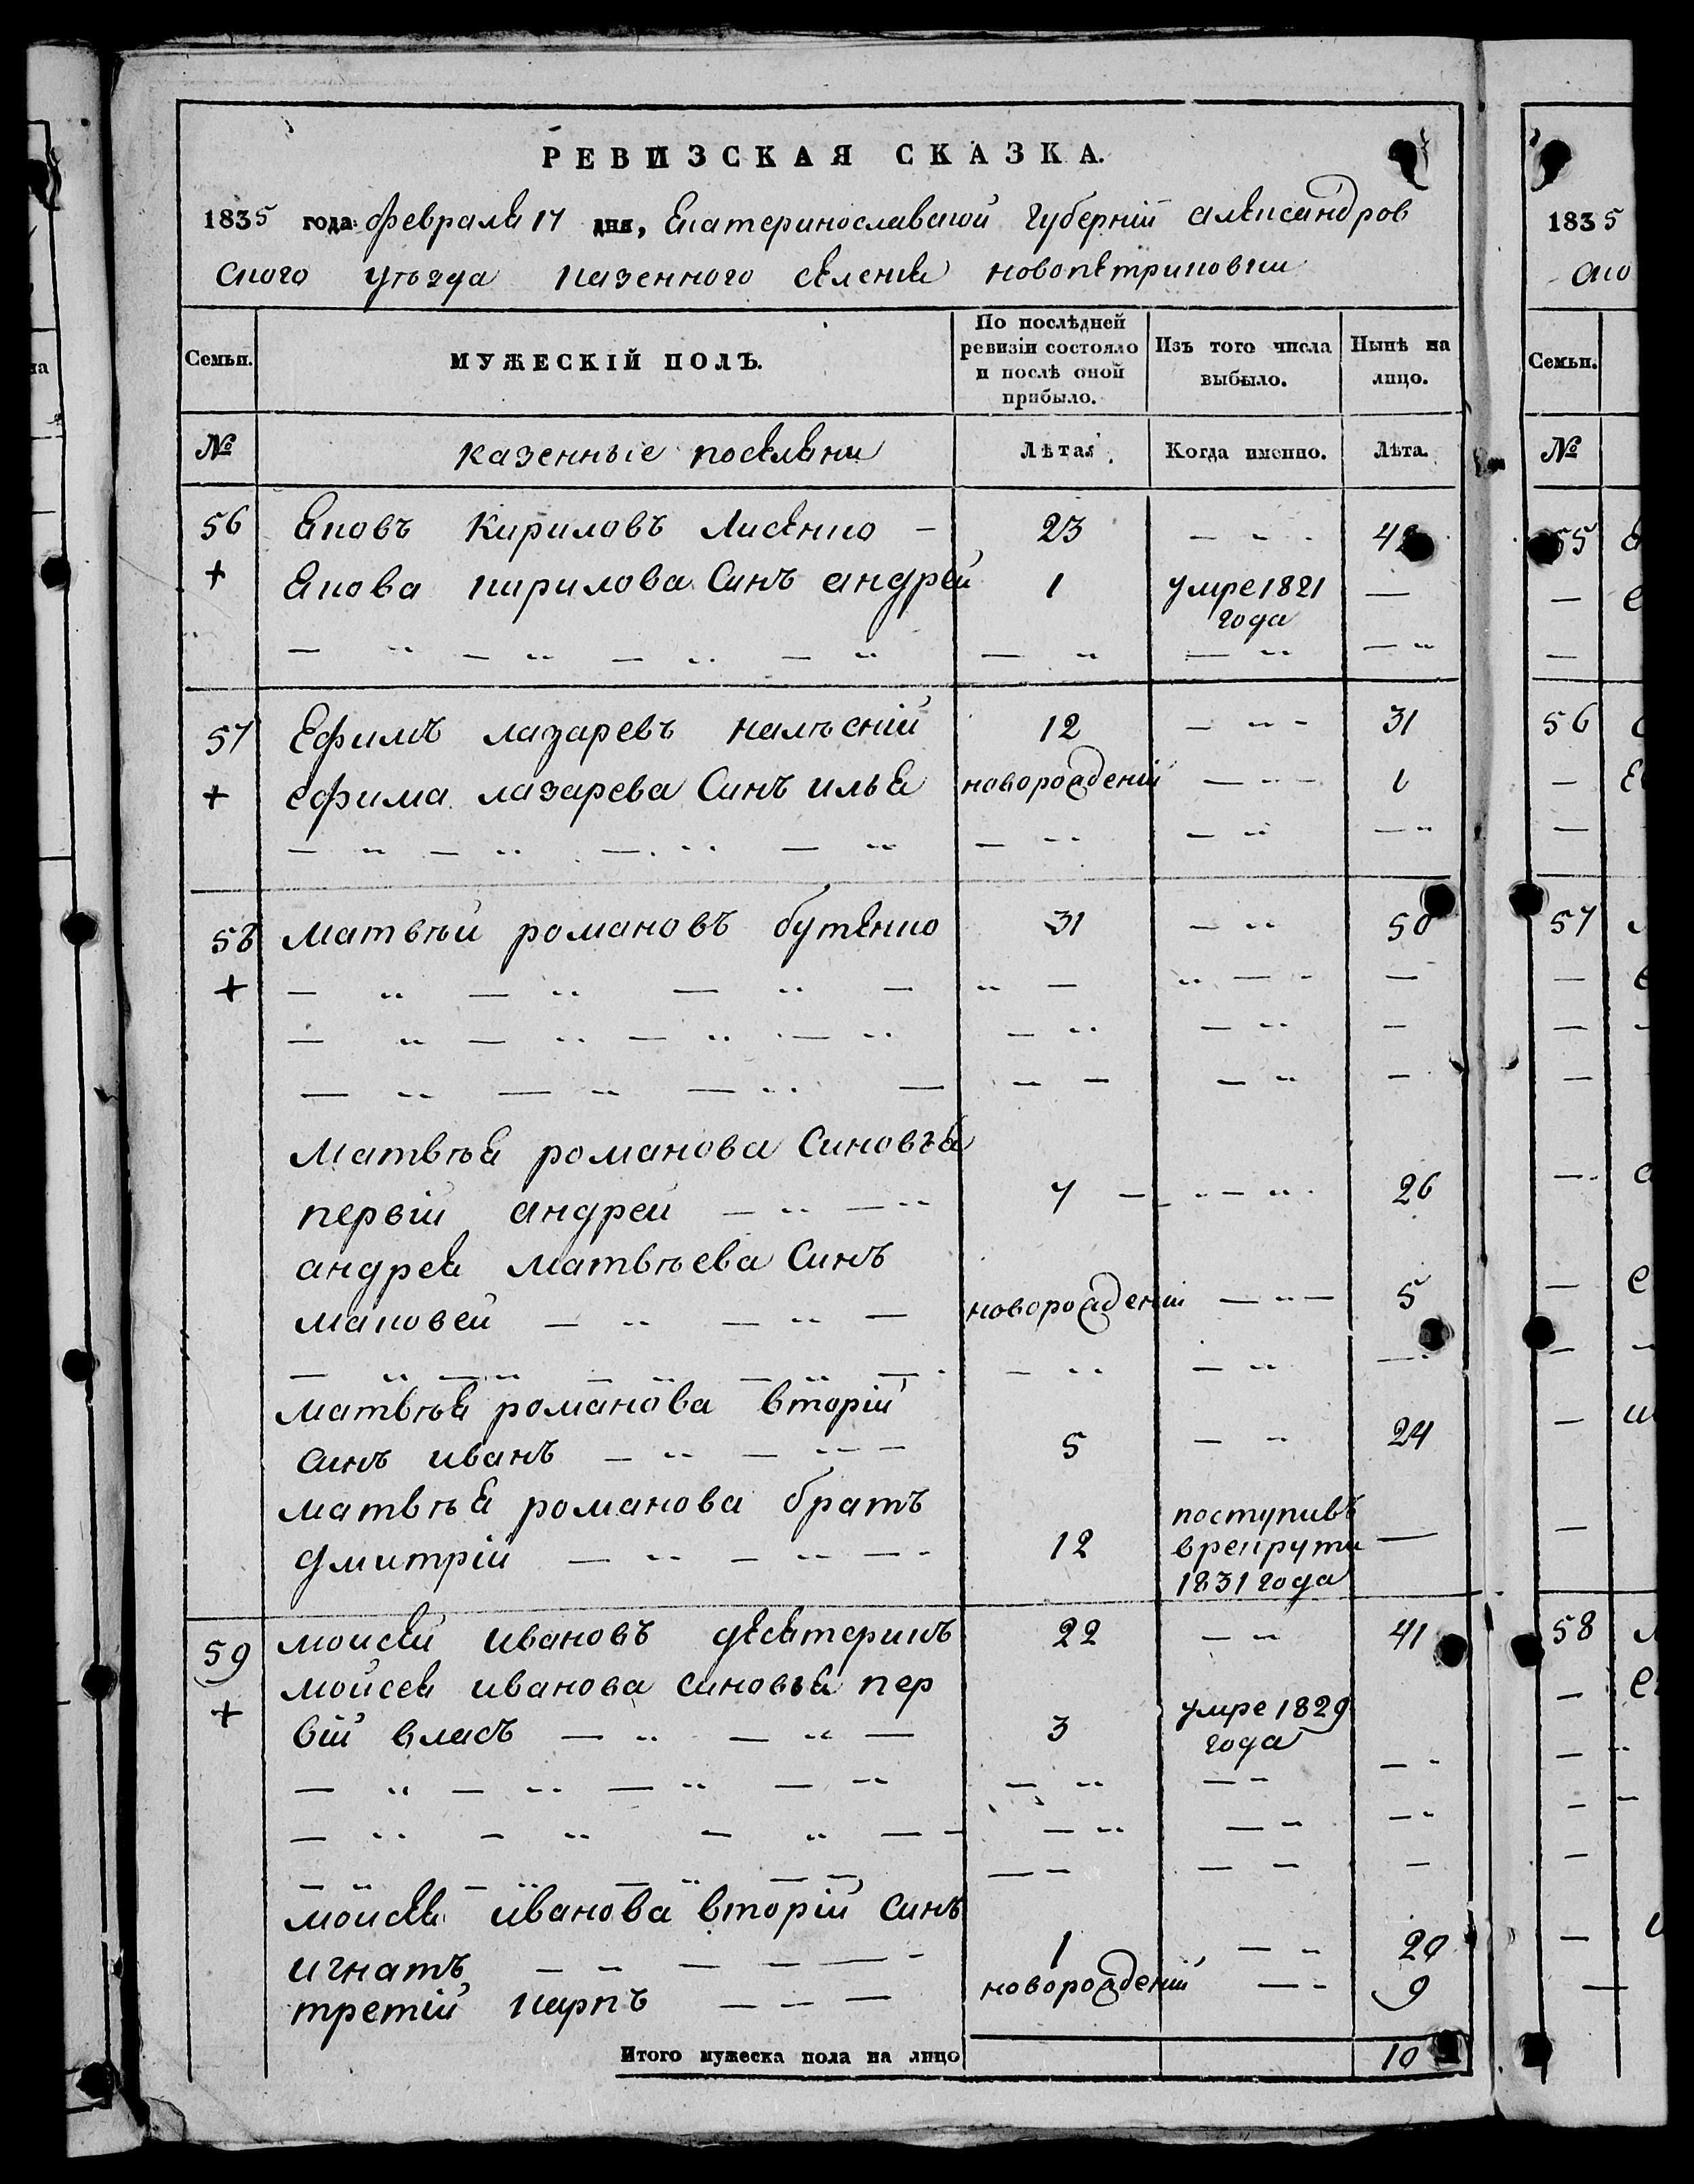 РЕВИЗСКАЯ СКАЗКА.
1835 года февраля 17 дня, Екатеринославской Губерніи александров
ского уѣзда казенного селения новопетриковки
Семьи. МУЖЕСКІЙ ПОЛЪ. По послѣдней ревизіи состояло и послѣ оной прибыло. Изъ того числа выбыло. Нынѣ на лицо.
№ казенные поселяни Лѣта. Когда именно. Лѣта.
56 Яковъ Кириловъ Лисенко — 23 — — 42
+ Якова кирилова Синъ андрей 1 умре 1821 года —
57 Ефимъ лазаревъ 12 — — 31
+ ефима лазарева Синъ илья новорожденій — — 1
58 Матвѣй романовъ бутенко 31 — — 50
+
Матвѣя романова Синовья
первій андрей — — 7 — — 26
андрея Матвѣева Синъ
маковей — — новорожденій — — 5
Матвѣя романова вторій
синъ иванъ — — 5 — — 24
матвѣя романова братъ
дмитрій — — 12 поступивъ в рекрути 1831 года —
59 моисей ивановъ дехтеринъ 22 — — 41
моисея иванова синовья пер
+ вій власъ — — 3 умре 1829 года
моисея иванова вторій синъ
игнатъ — — 1 — — 20
третій карпъ — — новорожденій — — 9
Итого мужеска пола на лицо 10
1835
ско
Семьи.
№
55
56
57
58